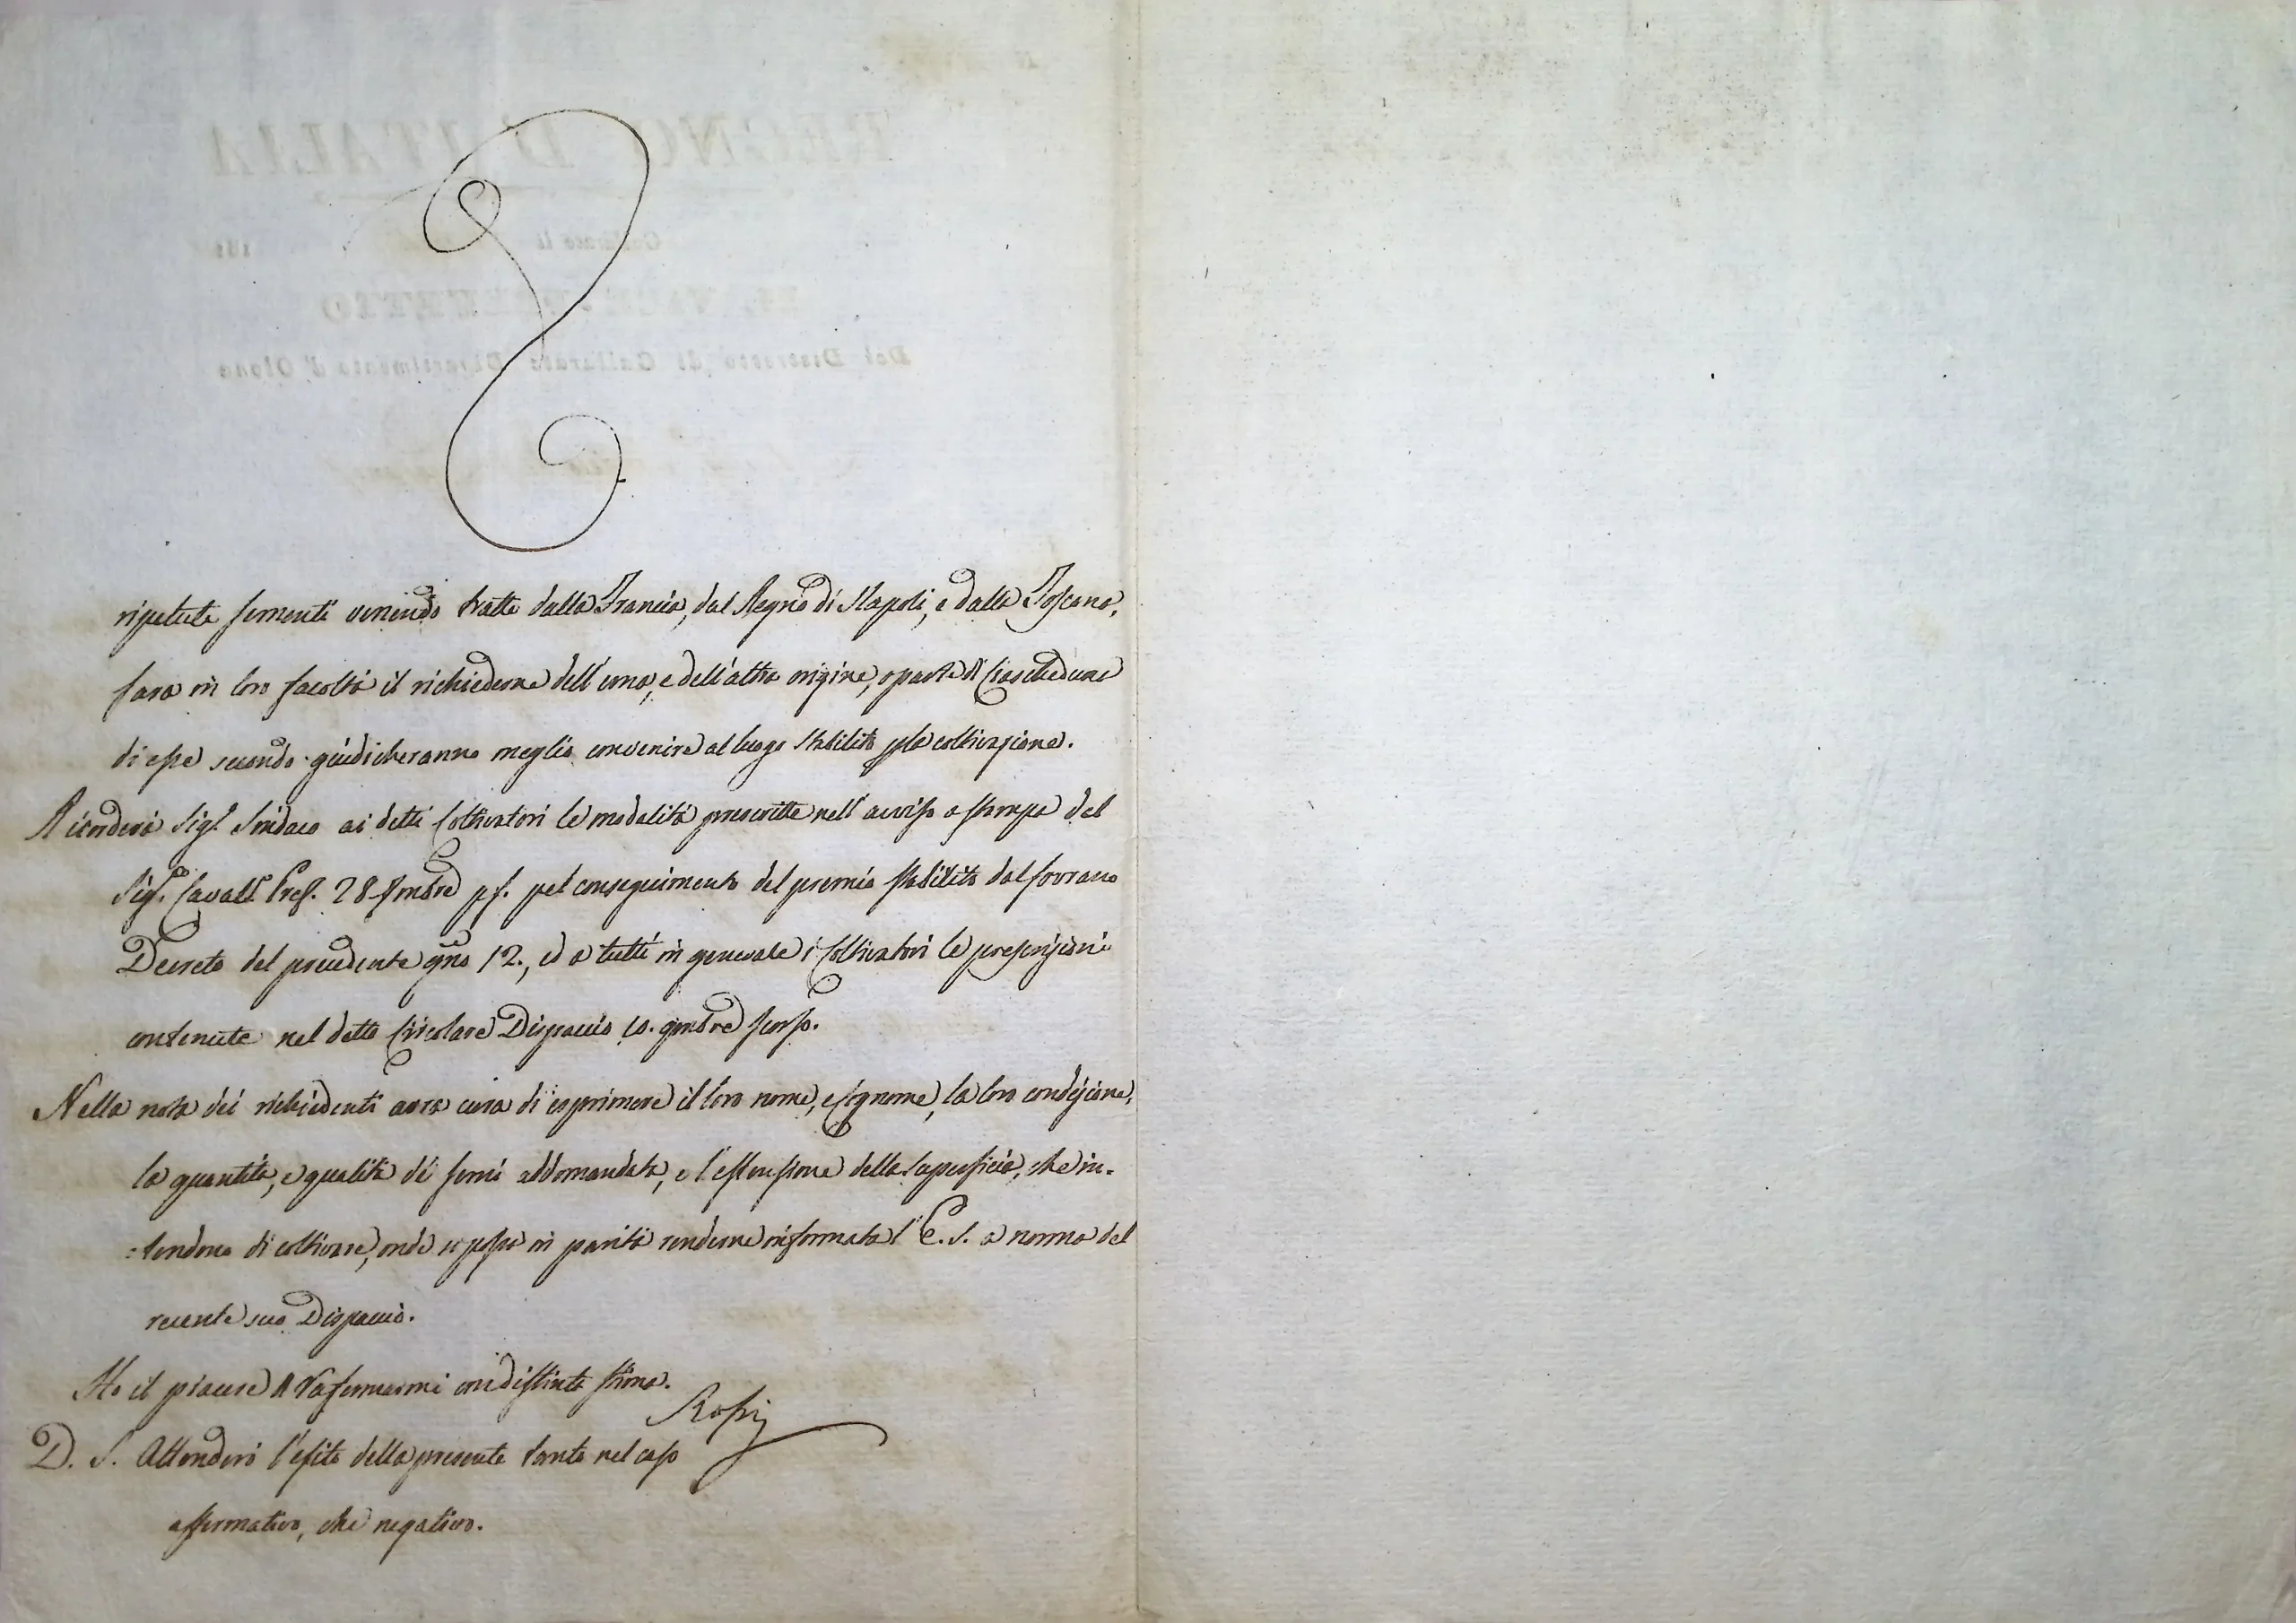 REGNO D'ITALIA
Gallarate li 181
IL VICE-PREFETTO
Del Distretto di Gallarate Dipartimento d'Olona
ripetute sementi venendo tratte dalla Francia, dal Regno di Napoli, e dalla Toscana,
sarà in loro facoltà il richiederne dell'una, e dell'altra origine, o parte di Ciascheduna
di esse secondo giudicheranno meglio convenire al luogo stabilito p la coltivazione.
Ricorderà Sigr. Sindaco ai detti Coltivatori le modalità prescritte nell'avviso a stampa del
Sigr. Cavalr. Pref. 28 pf. pel conseguimento del premio stabilito dal sovrano
Decreto del precedente gno 12., ed a tutti in generale i Coltivatori le prescrizioni
contenute nel detto Circolare Dispaccio 10. 9mbre scorso.
Nella nota dei richiedenti avrà cura di esprimere il loro nome, e Cognome, la loro condizione,
la quantità, e qualità dei semi addomandata, e l'estensione della superficie, che in-
:tendono di coltivare, onde io possa in parità renderne informata l'E. S. a norma del
recente suo Dispaccio.
Ho il piacere di raffermarmi con distinta stima.
Rossi
D. S. Attenderò l'esito della presente tanto nel caso
affermativo, che negativo.